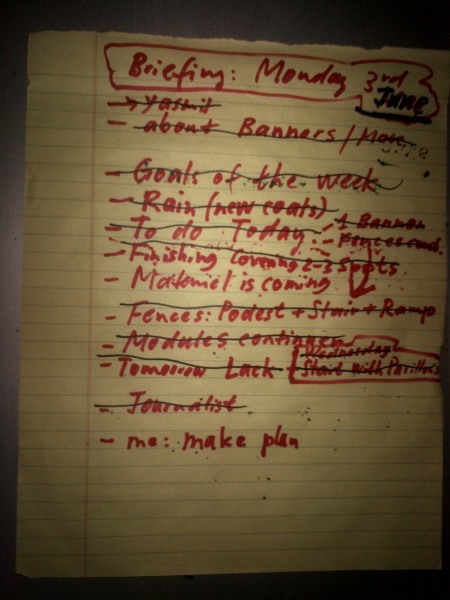 Briefing: Monday 3rd June
-> Yasmit
- about Banners / More
- Goals of the week
- Rain (new coats)
- To do Today: - 1 Banner
- Fences cont.
- Finishing Covering 2-3 Spots
- Material is coming
- Fences: Podest + Stair + Ramp
- Modules continen
- Tomorrow Lack - Wednesday
Start with Pavillons
- Journalist
- me: make plan